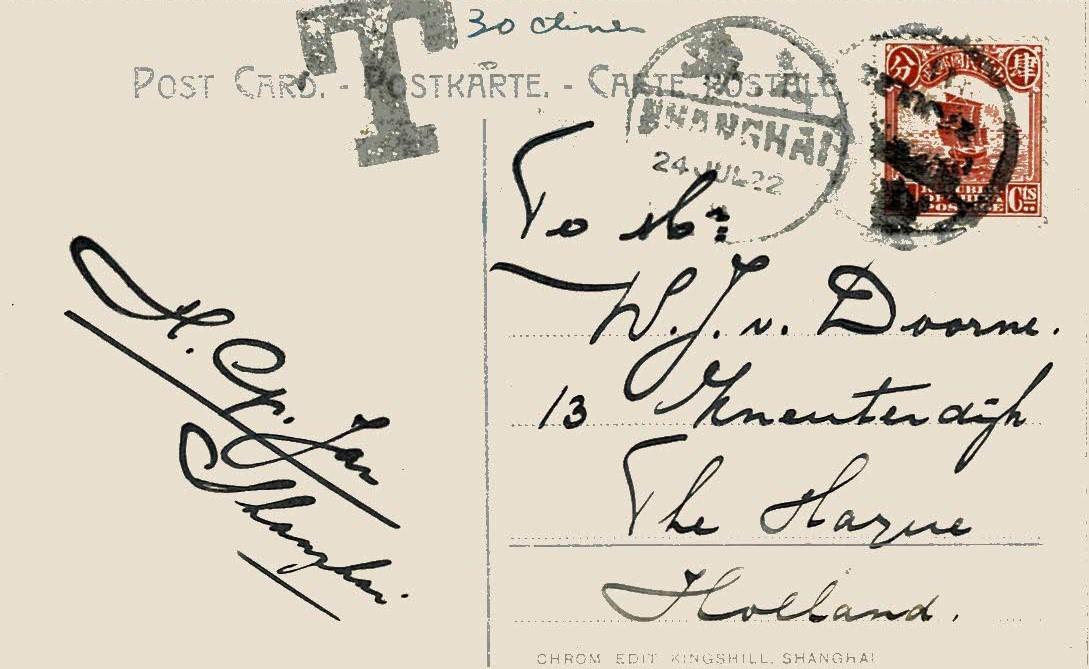 30
T
POST CARD. - POSTKARTE. - CARTE POSTALE
SHANGHAI
24 JUL 22
分 肆
POSTAGE
Cts
To Mr:
W. J. v. Doorne.
13 Kneuterdijk
The Hague
Holland.
H. Tan
Shanghai.
CHROM EDIT KINGSHILL, SHANGHAI